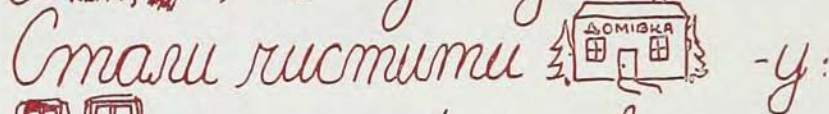 Стали чистити ДОМІВКА -у: